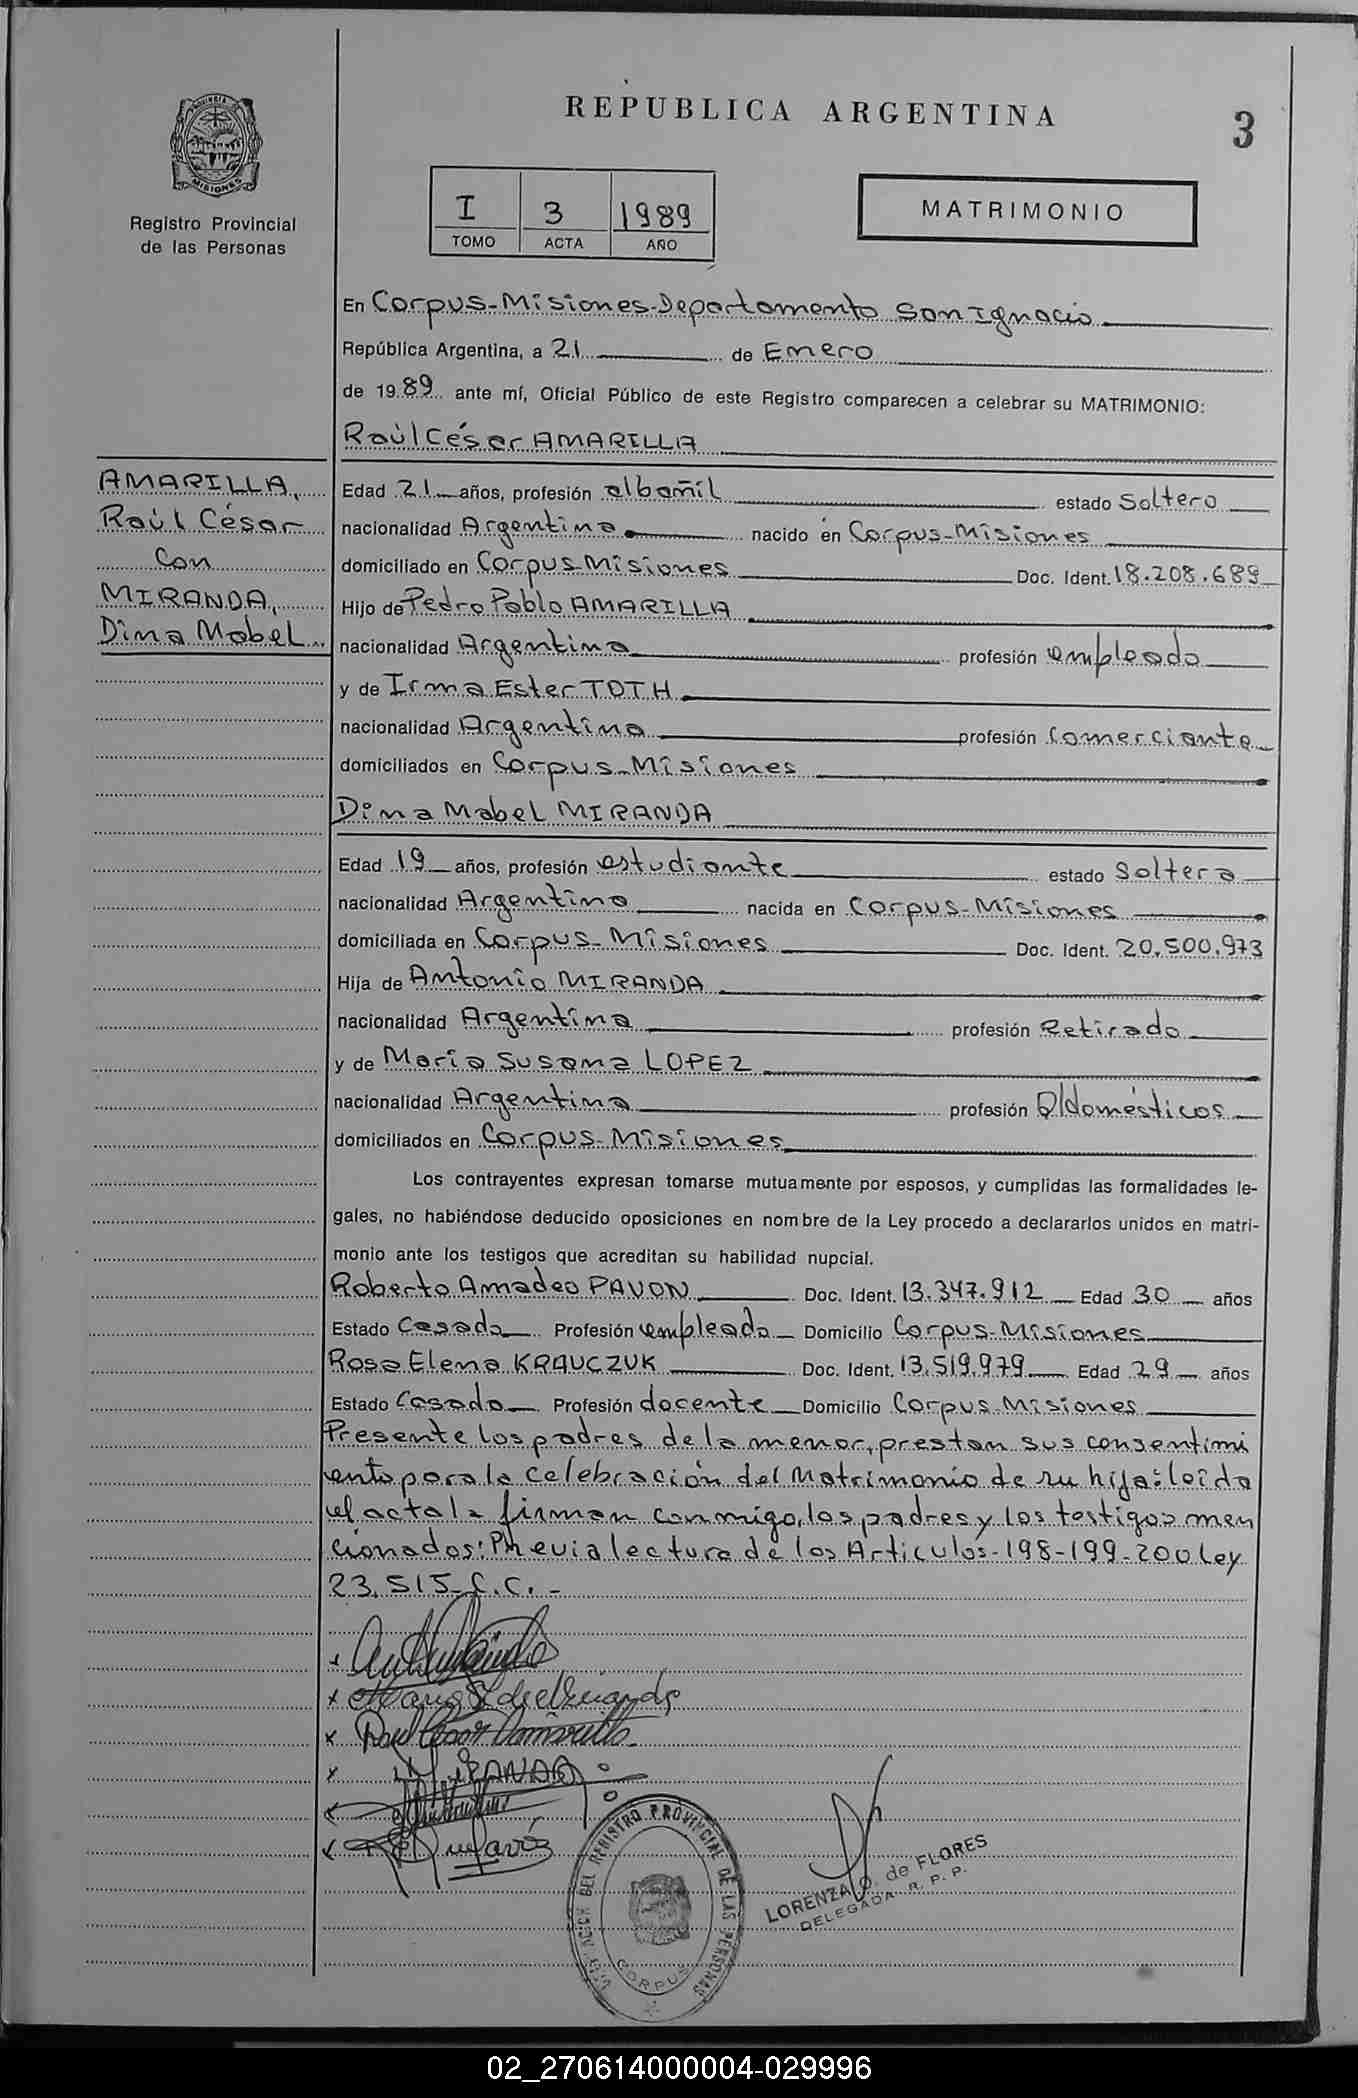 REPUBLICA ARGENTINA
3
PROVINCIA DE
MISIONES
Registro Provincial
de las Personas
I 3 1989
TOMO ACTA AÑO
MATRIMONIO
En Corpus-Misiones-Departamento San Ignacio
República Argentina, a 21 de Enero
de 1989 ante mí, Oficial Público de este Registro comparecen a celebrar su MATRIMONIO:
Raúl César AMARILLA
AMARILLA,
Raúl César
Con
MIRANDA,
Dina Mabel
Edad 21 años, profesión albañil estado Soltero
nacionalidad Argentina nacido en Corpus-Misiones
domiciliado en Corpus Misiones Doc. Ident. 18.208.689
Hijo de Pedro Pablo AMARILLA
nacionalidad Argentina profesión empleado
y de Irma Ester TOTH
nacionalidad Argentina profesión Comerciante
domiciliados en Corpus-Misiones
Dina Mabel MIRANDA
Edad 19 años, profesión estudiante estado Soltera
nacionalidad Argentina nacida en Corpus-Misiones
domiciliada en Corpus-Misiones Doc. Ident. 20.500.973
Hija de Antonio MIRANDA
nacionalidad Argentina profesión Retirado
y de María Susana LOPEZ
nacionalidad Argentina profesión Q/domésticos
domiciliados en Corpus-Misiones
Los contrayentes expresan tomarse mutuamente por esposos, y cumplidas las formalidades le-
gales, no habiéndose deducido oposiciones en nombre de la Ley procedo a declararlos unidos en matri-
monio ante los testigos que acreditan su habilidad nupcial.
Roberto Amadeo PAVON Doc. Ident. 13.347.912 Edad 30 años
Estado Casado Profesión empleado Domicilio Corpus-Misiones
Rosa Elena KRAUCZUK Doc. Ident. 13.519.979 Edad 29 años
Estado Casada Profesión docente Domicilio Corpus-Misiones
Presente los padres de la menor, prestan sus consentimi
ento para la Celebración del Matrimonio de su hija: loída
el acta la firman conmigo, los padres y los testigos men
cionados: Previa lectura de los Articulos-198-199-200 Ley
23.515-C.C.-
Raul Cesar Amarilla
MIRANDA
DEL REGISTRO PROVINCIAL DE LAS PERSONAS
CORPUS
LORENZA O. de FLORES
DELEGADA R. P. P.
02_270614000004-029996